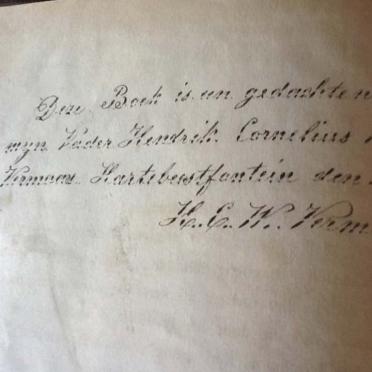 Deze Boek is en gedachten
myn Vader Hendrik Cornelius
Vermaas Hartebeestfontein den
H. C. W. Verm